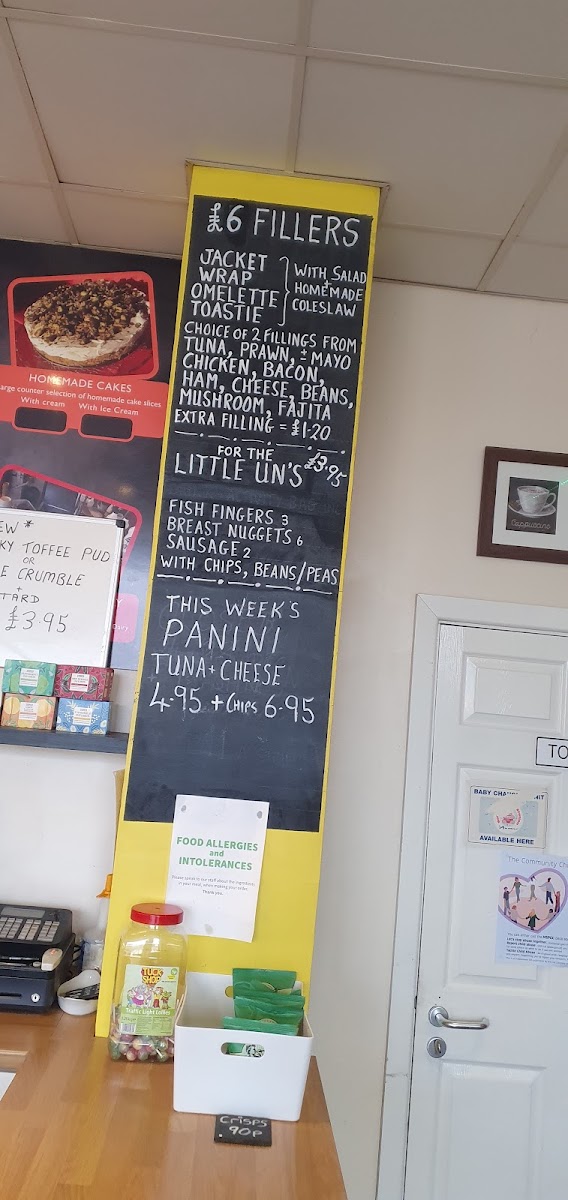 £6 FILLERS
JACKET
WRAP
OMELETTE
TOASTIE
WITH SALAD
+
HOMEMADE
COLESLAW
CHOICE OF 2 FILLINGS FROM
TUNA, PRAWN, ± MAYO
CHICKEN, BACON,
HAM, CHEESE, BEANS,
MUSHROOM, FAJITA
EXTRA FILLING = £1·20
FOR THE
LITTLE UN'S £3.95
FISH FINGERS 3
BREAST NUGGETS 6
SAUSAGE 2
WITH CHIPS, BEANS/PEAS
THIS WEEK'S
PANINI
TUNA+CHEESE
4.95 + CHIPS 6.95
HOMEMADE CAKES
large counter selection of homemade cake slices
With cream With Ice Cream
EW *
KY TOFFEE PUD
OR
E CRUMBLE
+
TARD
£3.95
FOOD ALLERGIES
and
INTOLERANCES
Please speak to our staff about the ingredients
in your meal, when making your order.
Thank you.
TUCK
SHOP
Traffic Light Lollies
Crisps
.90p
Cappuccino
TO
BABY CHA IT
AVAILABLE HERE
The Community Ch